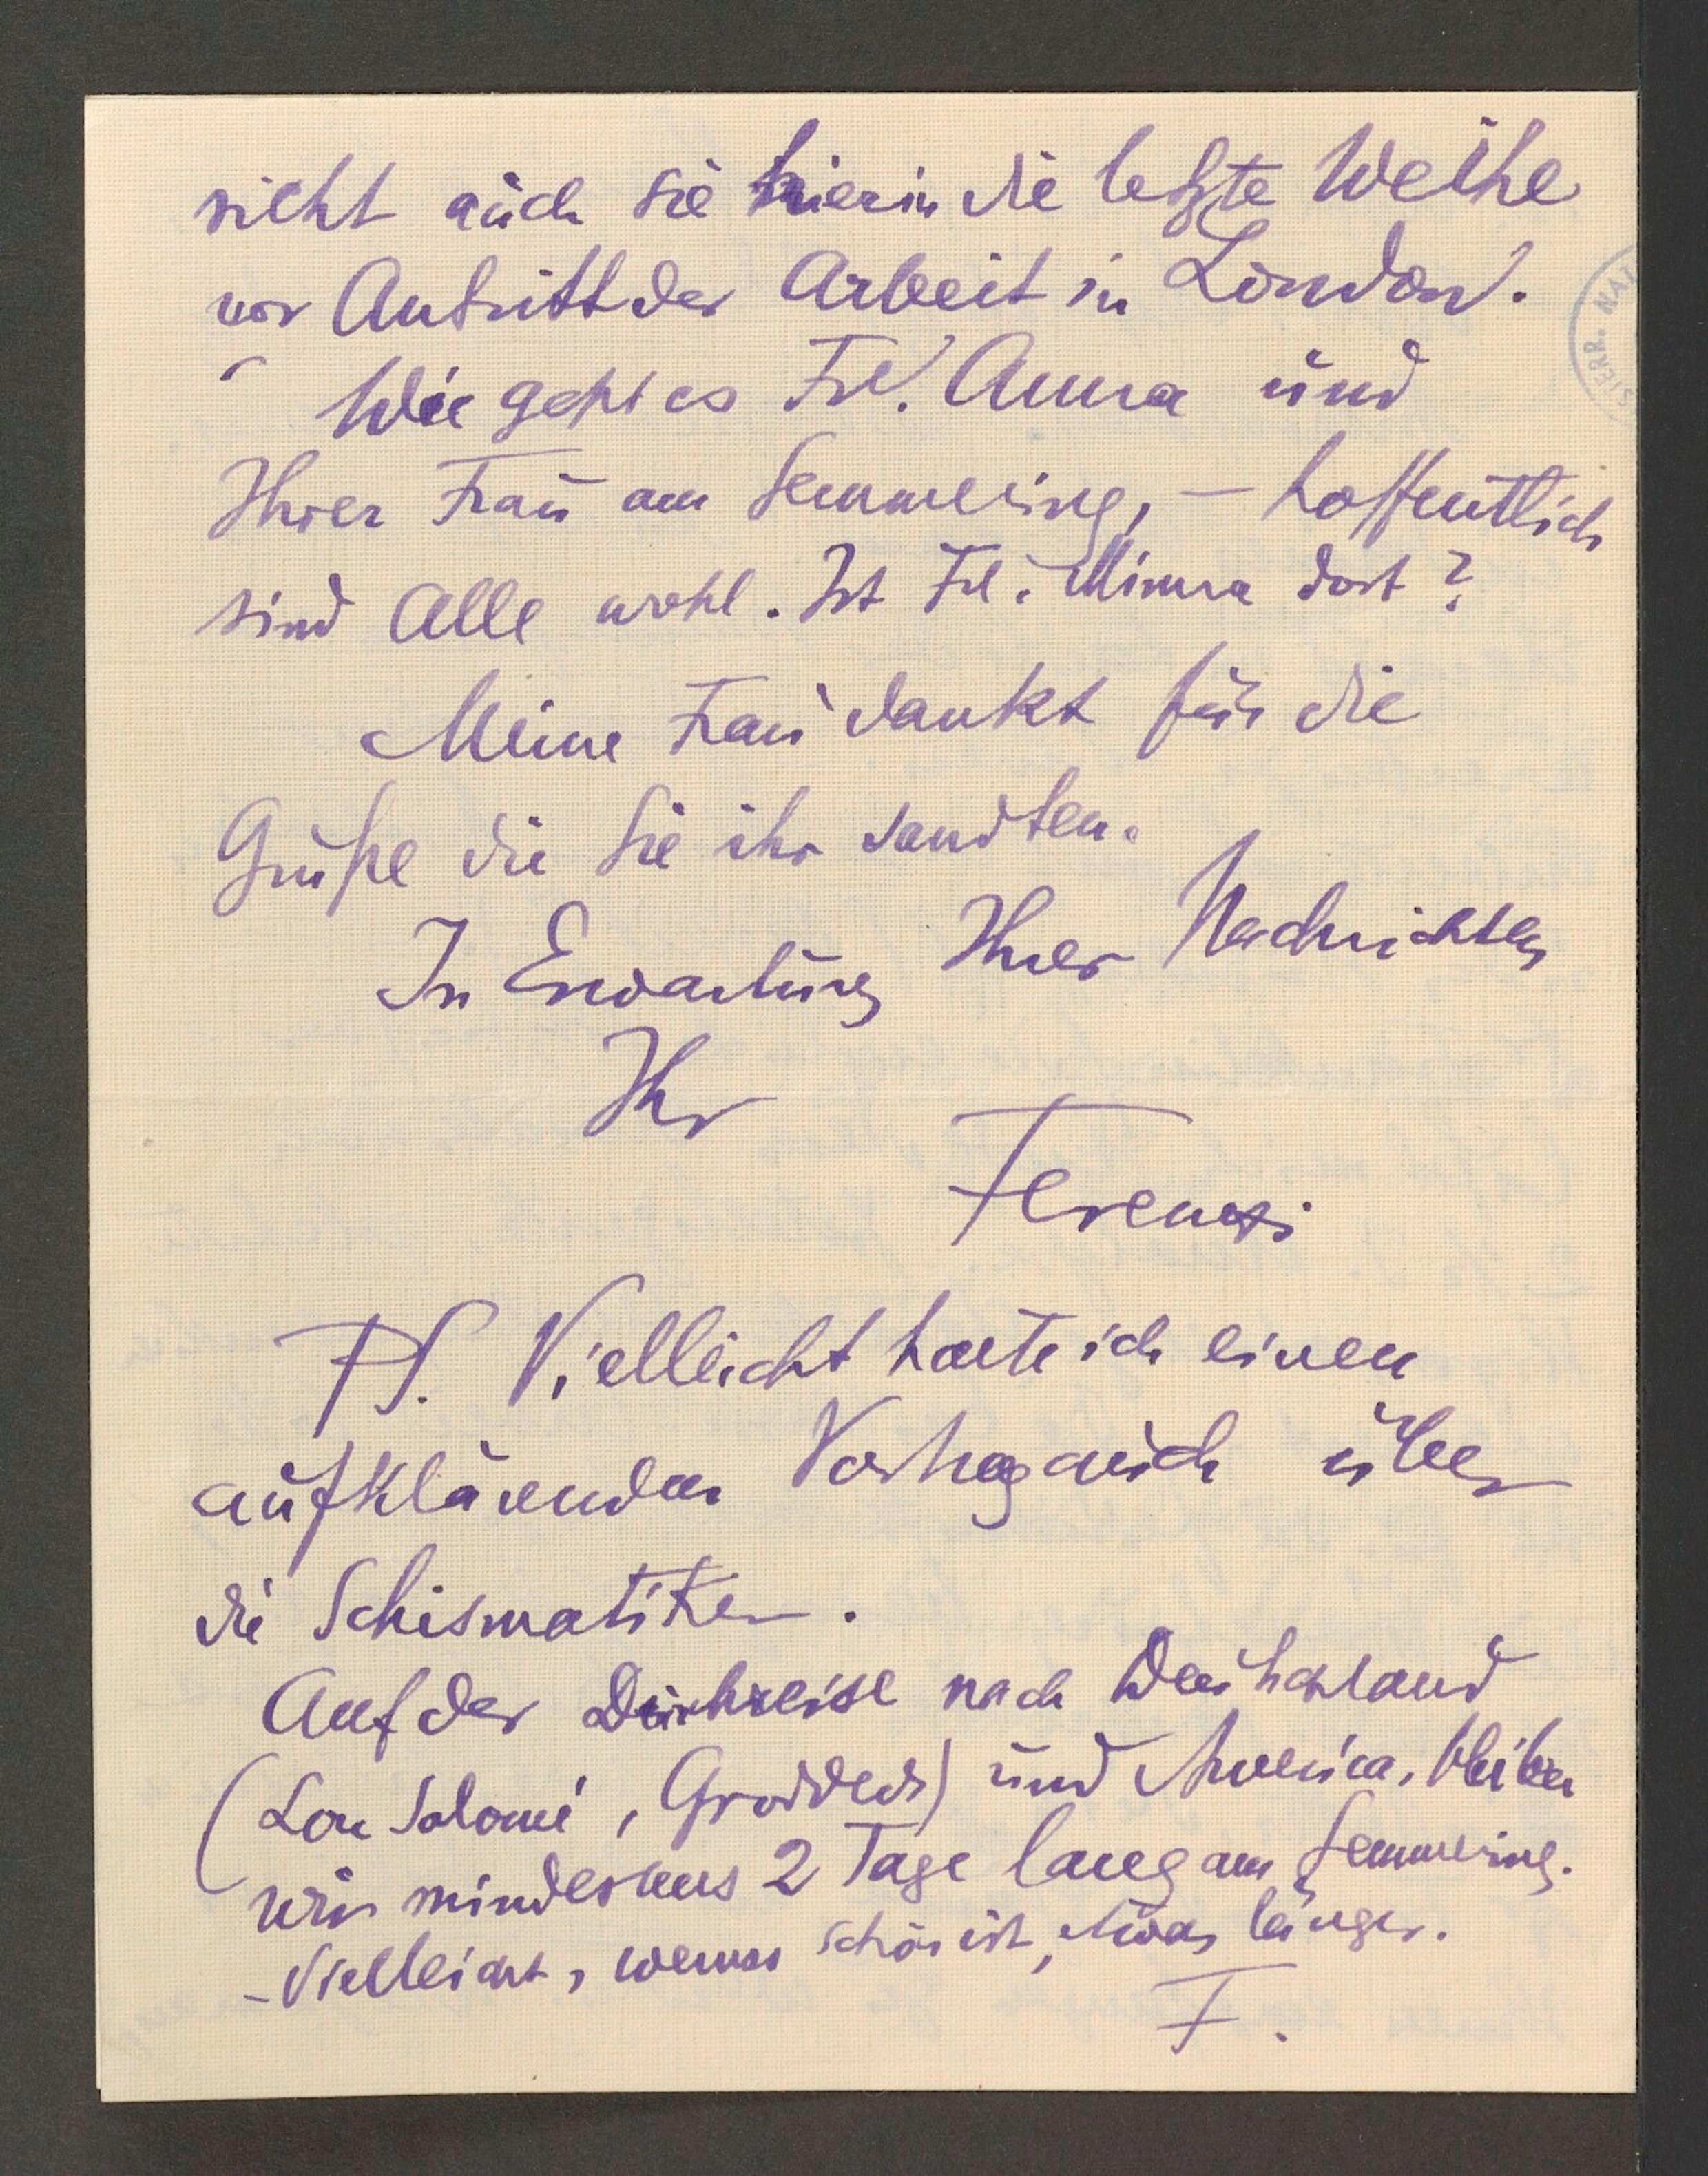 sieht auch sie hierin die letzte Weihe
vor Antritt der Arbeit in London.
Wie geht es Frl. Anna und
Ihrer Frau am Semmering, – hoffentlich
sind Alle wohl. Ist Frl. Minna dort?
Meine Frau dankt für die
Grüße die Sie ihr sandten.
In Erwartung Ihrer Nachrichten
Ihr
Ferenczi
PS. Vielleicht halte ich einen
aufklärenden Vortrag auch über
die Schismatiker.
Auf der Durchreise nach Deutschland
(Lou Salomé, Groddeck) und America, bleiben
wir mindestens 2 Tage lang am Semmering.
– Vielleicht, wenn es schön ist, etwas länger.
F.
STERR. NAT